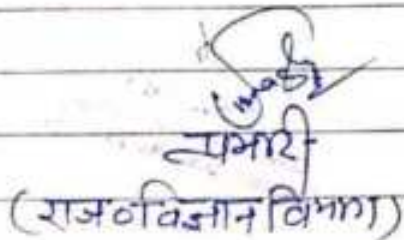 प्रभारी
(राज०विज्ञान विभाग)